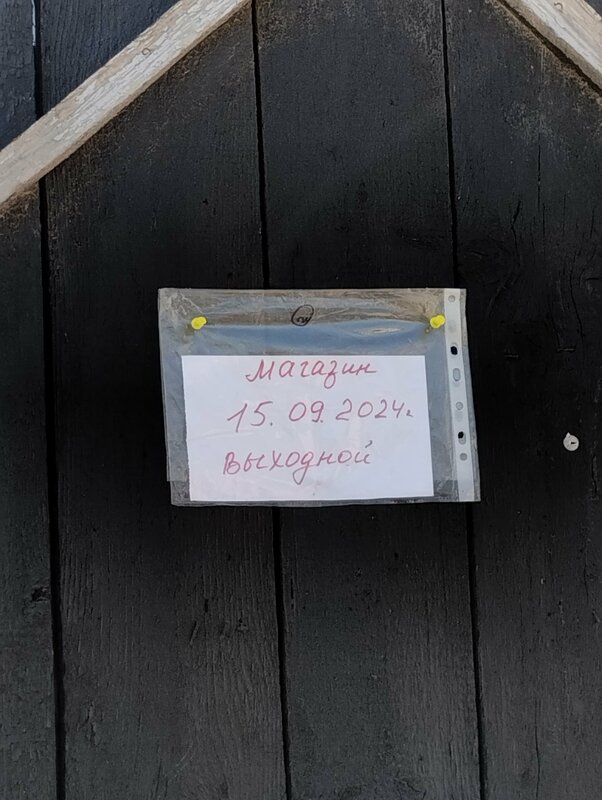 Магазин
15.09.2024г.
Выходной